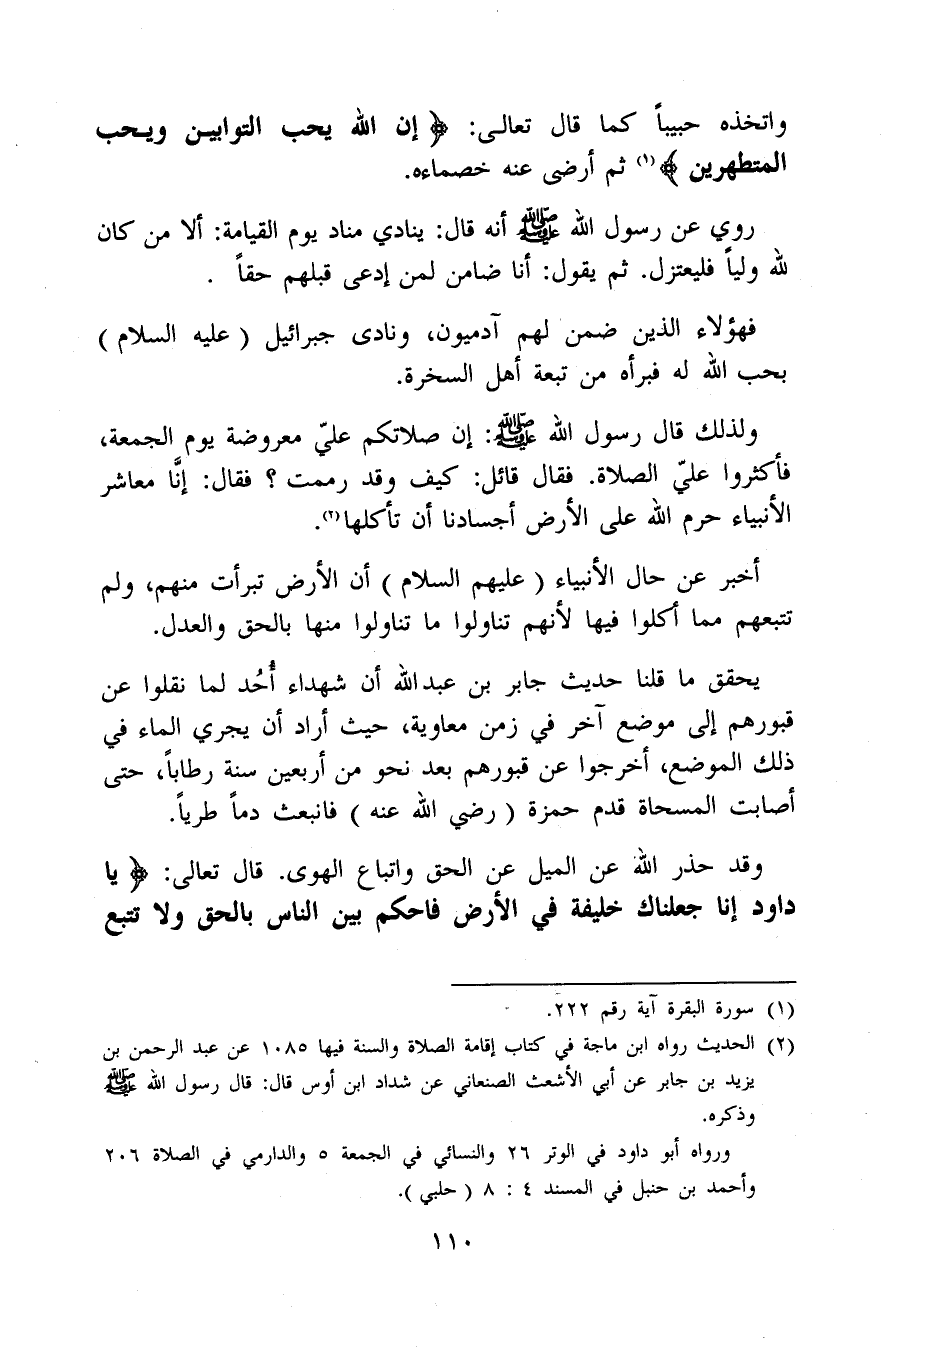 واتخذه حبيباً كما قال تعالى: ﴿ إن الله يحب التوابين ويحب
المتطهرين ﴾(١) ثم أرضى عنه خصماءه.
روي عن رسول الله ﷺ أنه قال: ينادي مناد يوم القيامة: ألا من كان
لله ولياً فليعتزل. ثم يقول: أنا ضامن لمن إدعى قبلهم حقاً .
فهؤلاء الذين ضمن لهم آدميون، ونادى جبرائيل ( عليه السلام )
بحب الله له فبرأه من تبعة أهل السخرة.
ولذلك قال رسول الله ﷺ: إن صلاتكم عليّ معروضة يوم الجمعة،
فأكثروا عليّ الصلاة. فقال قائل: كيف وقد رممت ؟ فقال: إنَّا معاشر
الأنبياء حرم الله على الأرض أجسادنا أن تأكلها(٢).
أخبر عن حال الأنبياء ( عليهم السلام ) أن الأرض تبرأت منهم، ولم
تتبعهم مما أكلوا فيها لأنهم تناولوا ما تناولوا منها بالحق والعدل.
يحقق ما قلنا حديث جابر بن عبدالله أن شهداء أُحُد لما نقلوا عن
قبورهم إلى موضع آخر في زمن معاوية، حيث أراد أن يجري الماء في
ذلك الموضع، أخرجوا عن قبورهم بعد نحو من أربعين سنة رطاباً، حتى
أصابت المسحاة قدم حمزة ( رضي الله عنه ) فانبعث دماً طرياً.
وقد حذر الله عن الميل عن الحق واتباع الهوى. قال تعالى: ﴿ يا
داود إنا جعلناك خليفة في الأرض فاحكم بين الناس بالحق ولا تتبع
(١) سورة البقرة آية رقم ٢٢٢.
(٢) الحديث رواه ابن ماجة في كتاب إقامة الصلاة والسنة فيها ١٠٨٥ عن عبد الرحمن بن
يزيد بن جابر عن أبي الأشعث الصنعاني عن شداد ابن أوس قال: قال رسول الله ﷺ
وذكره.
ورواه أبو داود في الوتر ٢٦ والنسائي في الجمعة ٥ والدارمي في الصلاة ٢٠٦
وأحمد بن حنبل في المسند ٤ : ٨ ( حلبي ).
١١٠